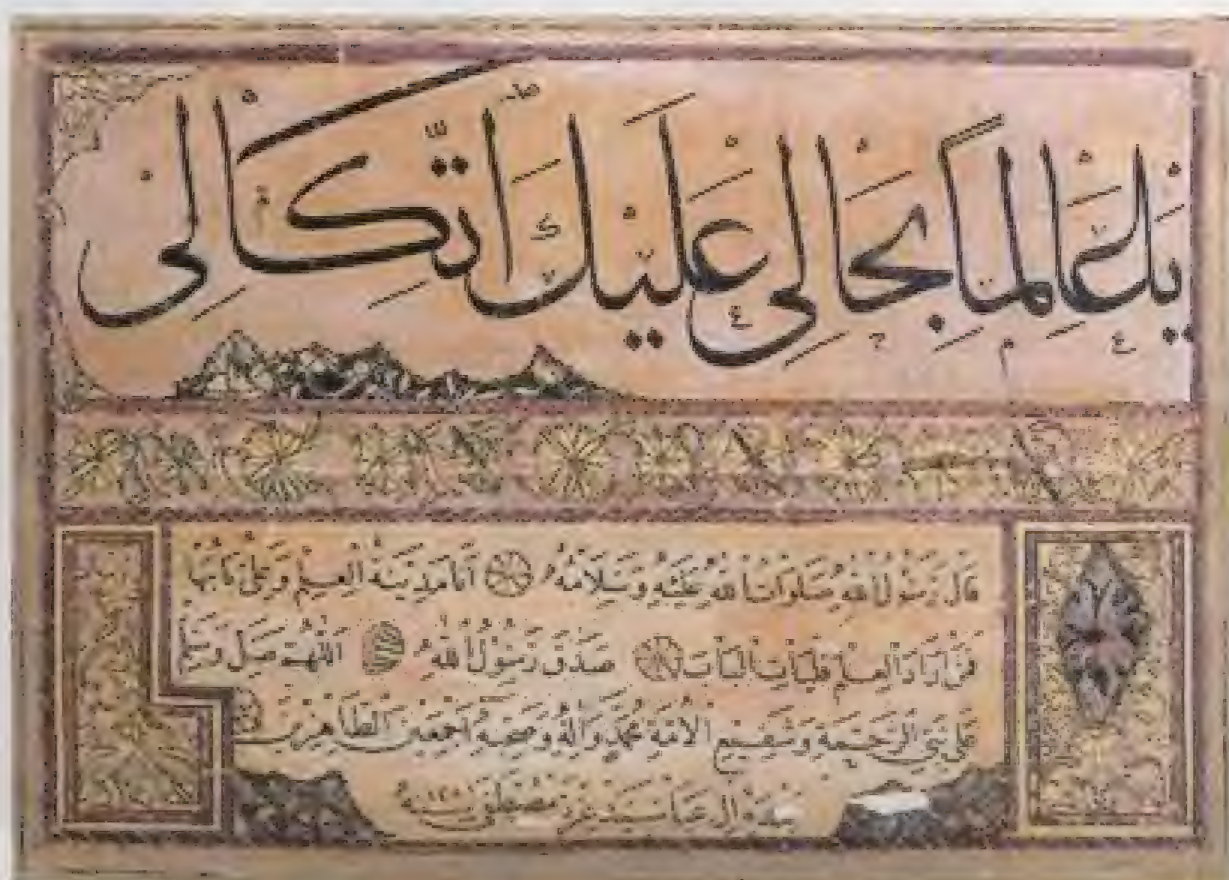 يا عالما بحالي عليك اتكالي
قَالَ رَسُولُ اللهِ صَلَوَاتُ اللهِ عَلَيْهِ وَسَلَامُهُ أَنَا مَدِينَةُ الْعِلْمِ وَعَلِيٌّ بَابُهَا
فَمَنْ أَرَادَ الْعِلْمَ فَلْيَأْتِ الْبَابَ صَدَقَ رَسُولُ اللهِ اَللّٰهُمَّ صَلِّ وَسَلِّمْ
عَلَى نَبِيِّ الرَّحْمَةِ وَشَفِيعِ الْأُمَّةِ مُحَمَّدٍ وَآلِهِ وَصَحْبِهِ أَجْمَعِينَ الطَّاهِرِينَ
عزت مصطفى سنه